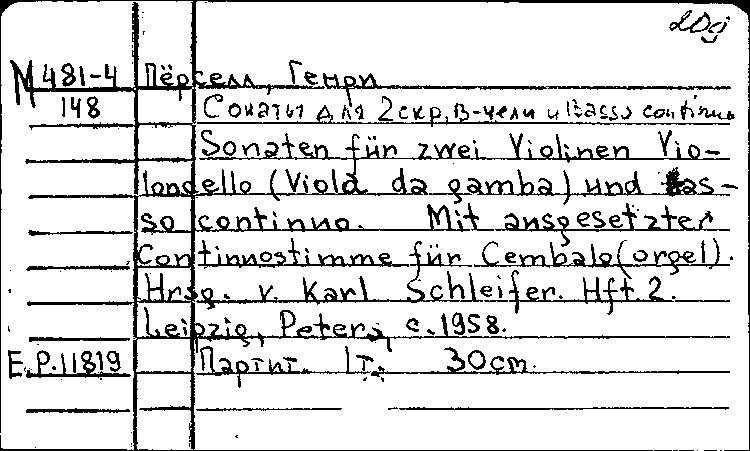 20д
M 481-4 Пёрселл, Генри
148 Сонаты для 2 скр, в-чели и Basso continuo
Sonaten für zwei Violinen Vio-
loncello (Viola da gamba) und Bas-
so continuo. Mit ausgesetzter
Continnostimme für Cembalo (orgel).
Hrsg. v. Karl Schleifer. Hft. 2.
Leipzig, Peters, c. 1958.
E.P.11819 Партит. 1т. 30cm.